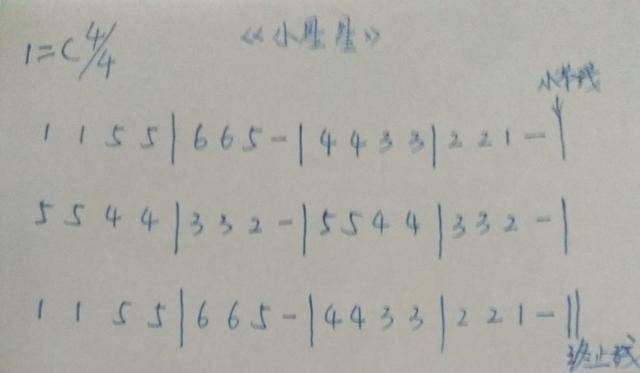 《小星星》
1=C 4/4
小节线
1 1 5 5 | 6 6 5 - | 4 4 3 3 | 2 2 1 - |
5 5 4 4 | 3 3 2 - | 5 5 4 4 | 3 3 2 - |
1 1 5 5 | 6 6 5 - | 4 4 3 3 | 2 2 1 - ||
终止线